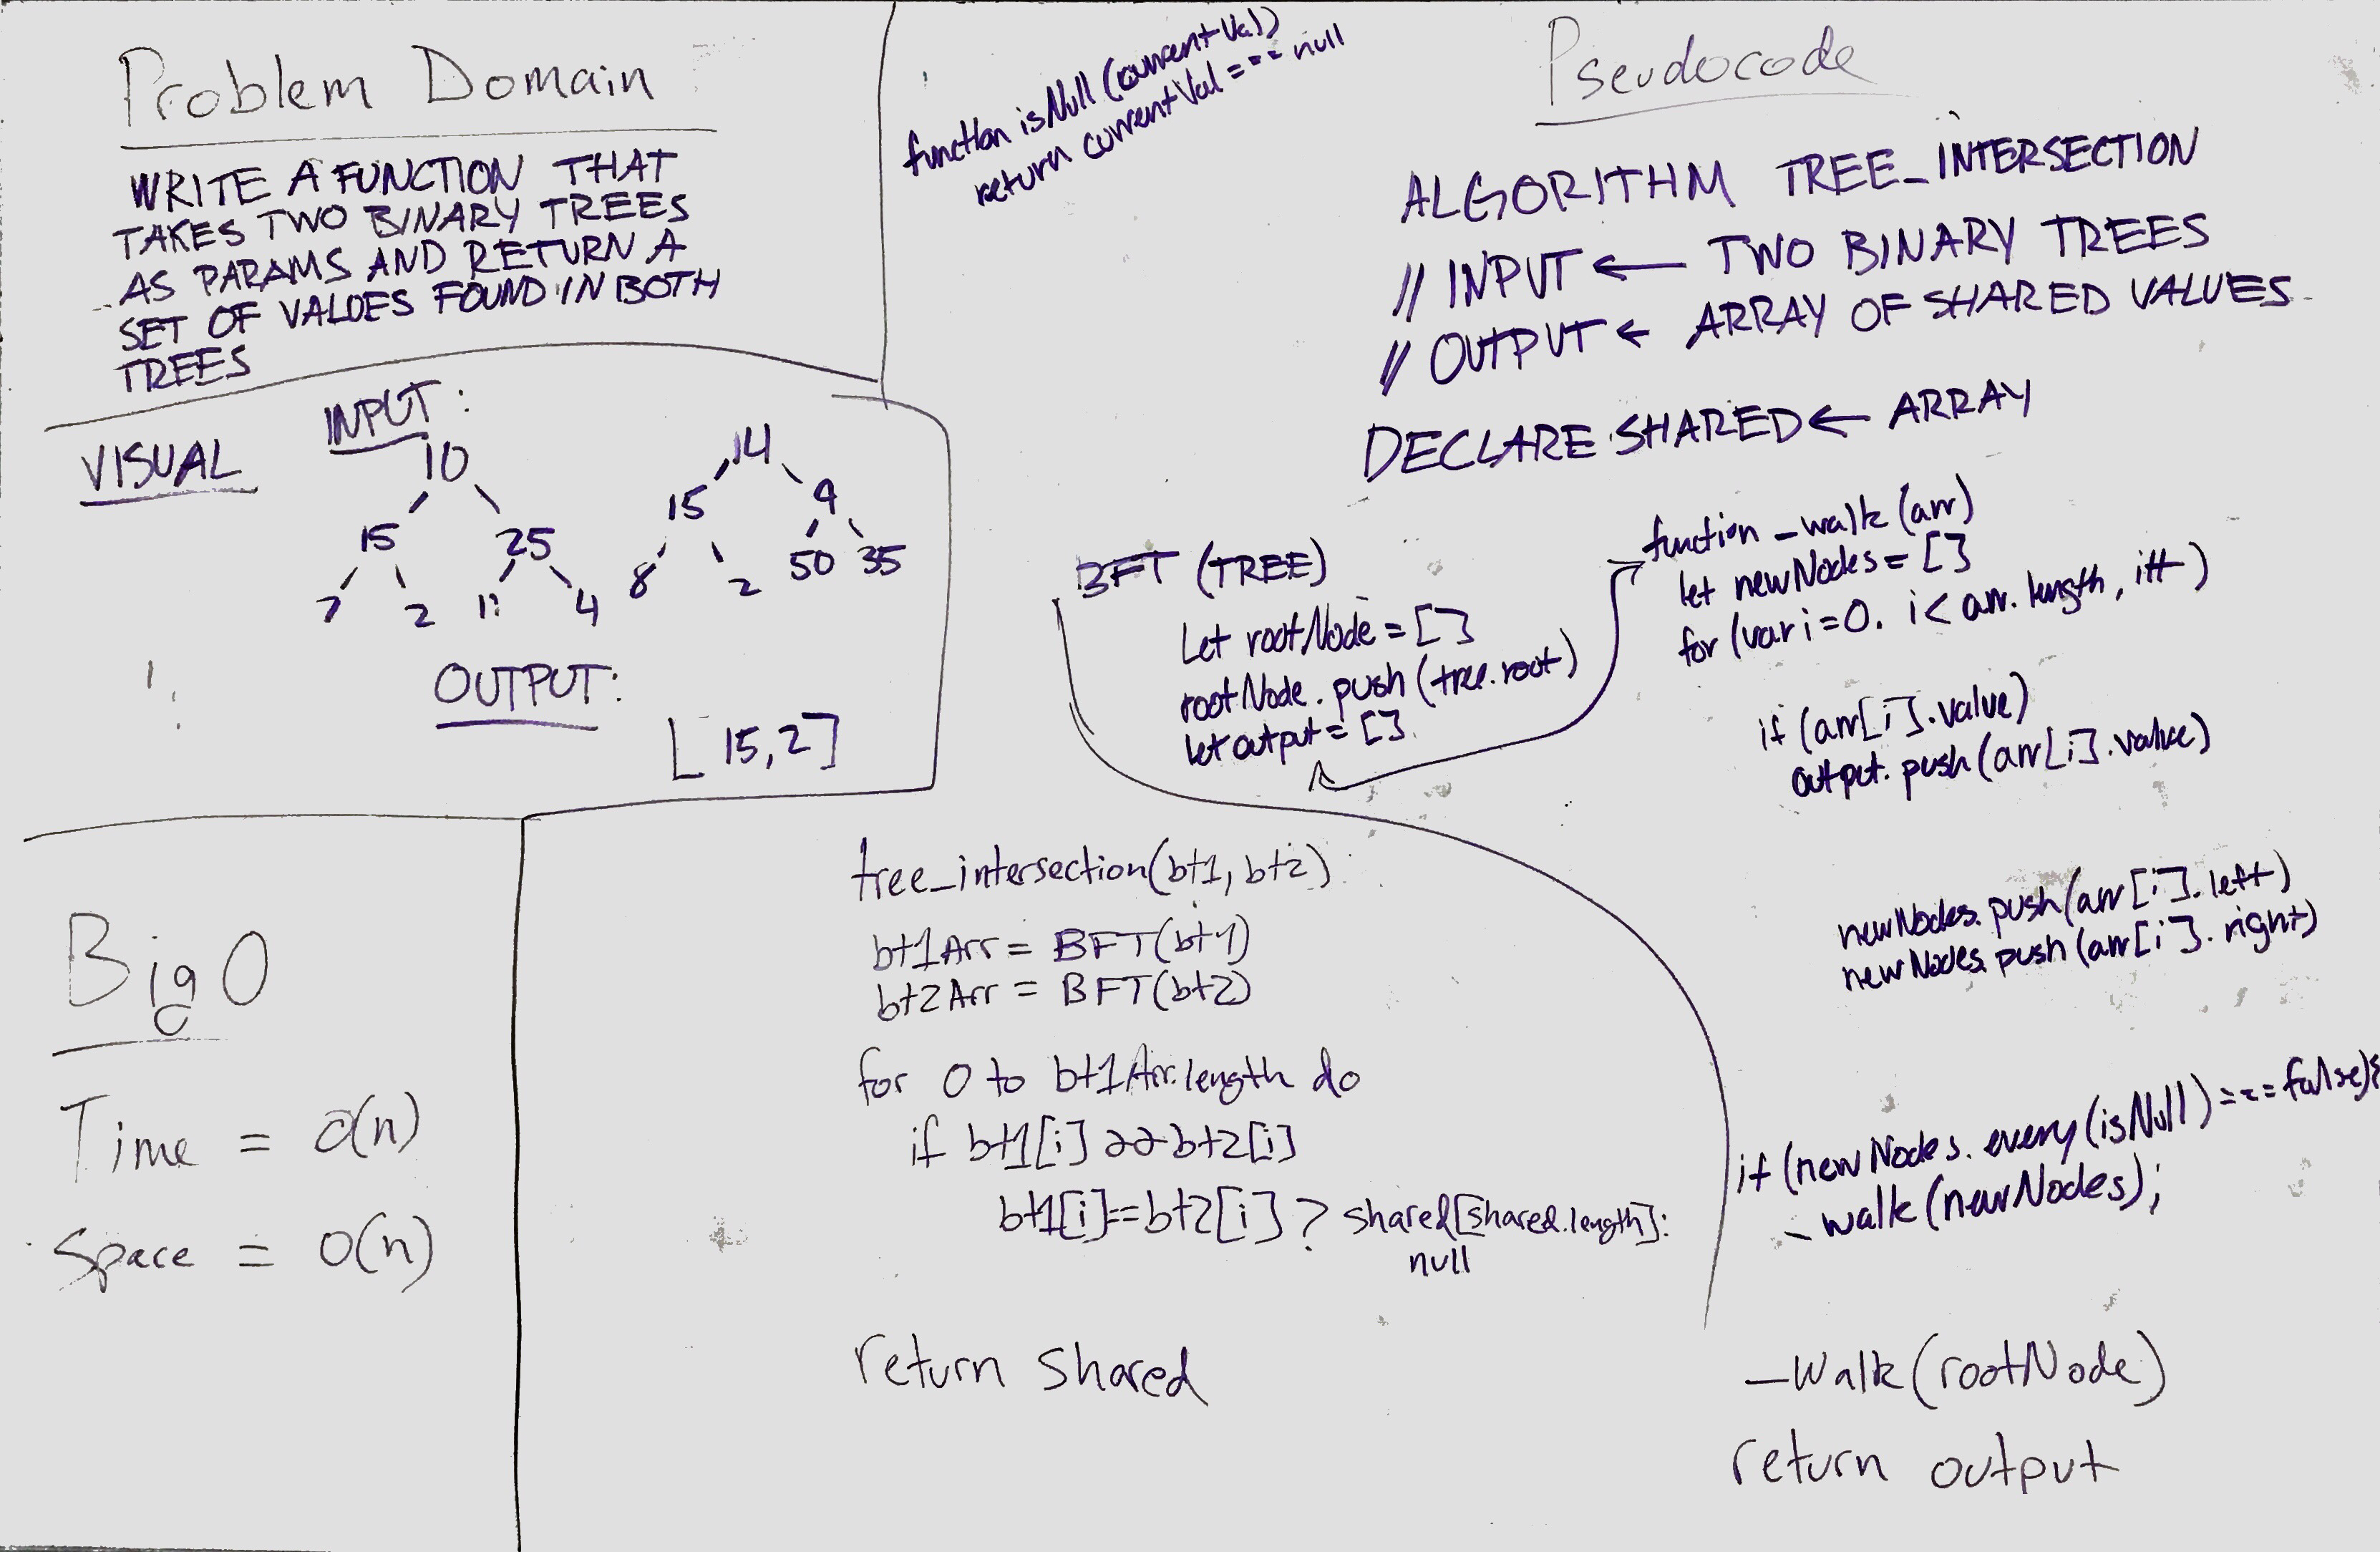 Problem Domain
WRITE A FUNCTION THAT
TAKES TWO BINARY TREES
AS PARAMS AND RETURN A
SET OF VALUES FOUND IN BOTH
TREES
VISUAL
INPUT:
10
15 25
7 2 11 4
14
15 9
8 2 50 35
OUTPUT:
[15,2]
Big O
Time = O(n)
Space = O(n)
function isNull (currentVal)
return currentVal === null
Pseudocode
ALGORITHM TREE_INTERSECTION
// INPUT ← TWO BINARY TREES
// OUTPUT ← ARRAY OF SHARED VALUES
DECLARE SHARED ← ARRAY
BFT (TREE)
Let rootNode = []
rootNode.push(tree.root)
let output = []
function _walk (arr)
let newNodes = []
for (var i=0. i< arr.length, i++)
if (arr[i].value)
output.push(arr[i].value)
newNodes.push(arr[i].left)
newNodes.push(arr[i].right)
if (newNodes.every(isNull) === false){
_walk(newNodes);
_walk(rootNode)
return output
tree_intersection(bt1, bt2)
bt1Arr = BFT(bt1)
bt2Arr = BFT(bt2)
for 0 to bt1Arr.length do
if bt1[i] && bt2[i]
bt1[i]==bt2[i] ? shared[shared.length]:
null
return shared